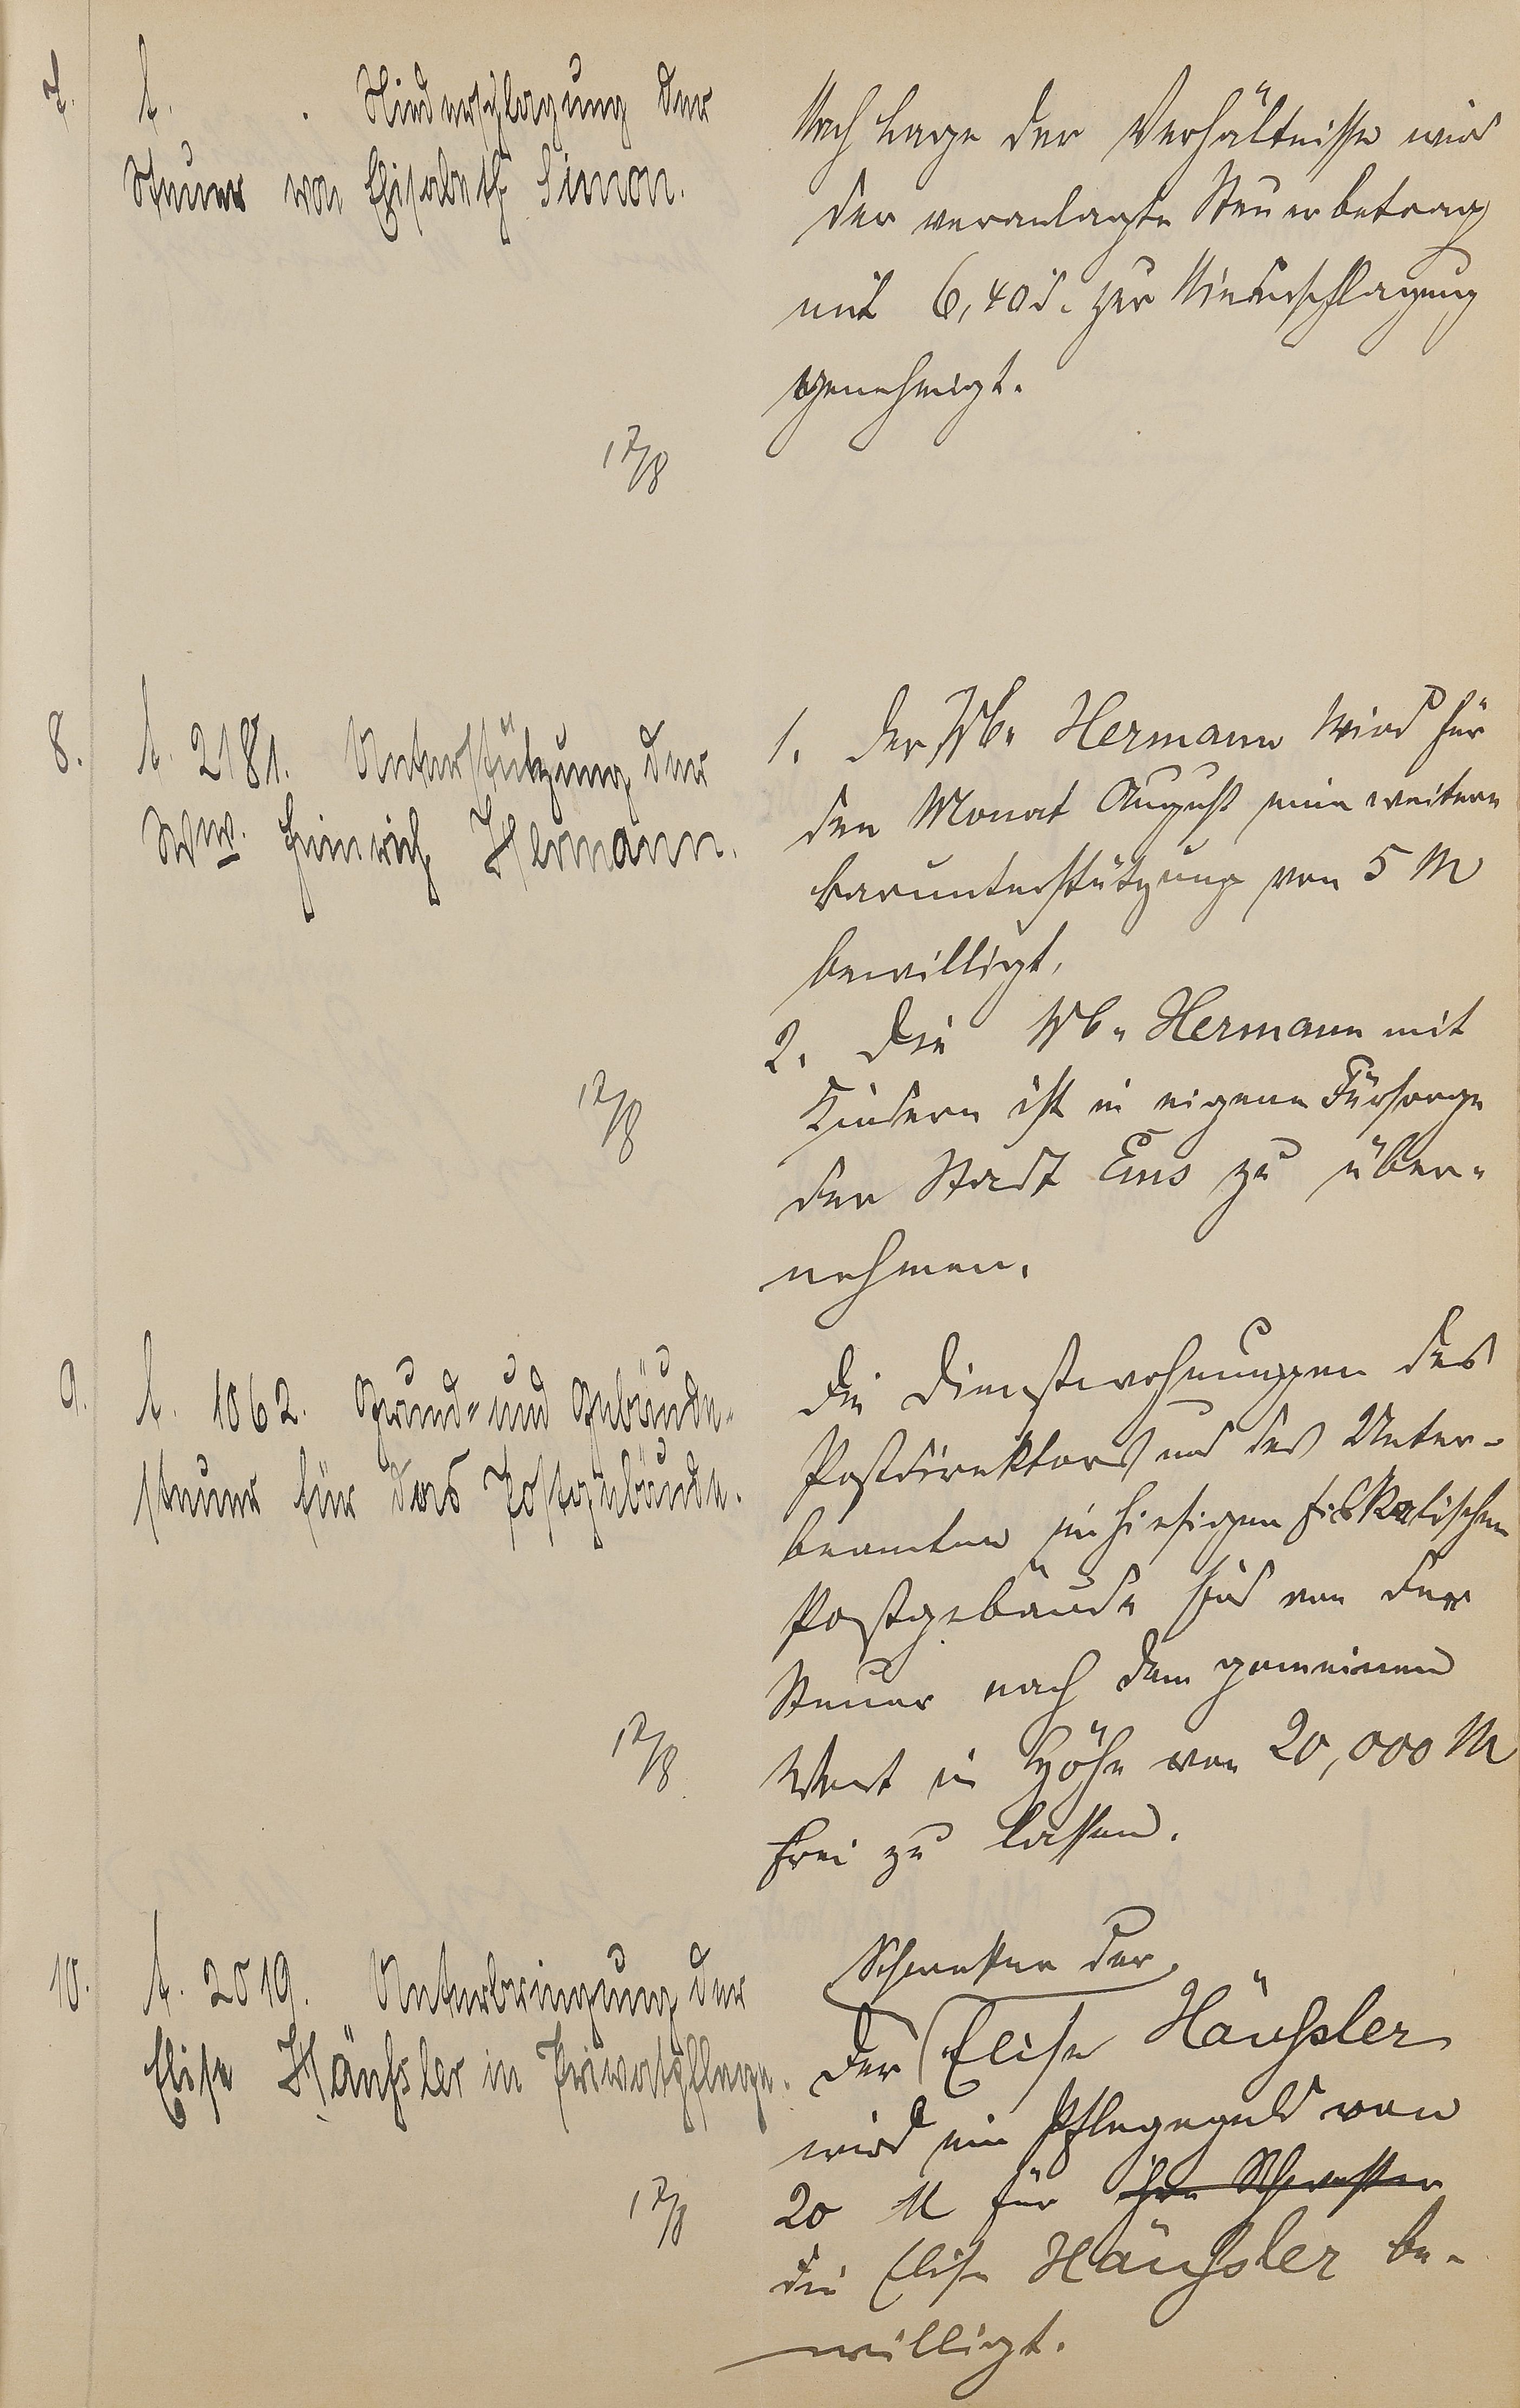 7.
t. . Niederschlagung der
Steuer von Elisabeth Simon.
Nach Lage der Verhältnisse wird
der veranlagte Steuerbetrag
mit 6,40 zur Niederschlagung
genehmigt.
17/8
8.
t. 2181. Unterstützung der
Ww. Heinrich Hermann.
1. Der Wb. Hermann wird für
den Monat August eine weitere
Barunterstützung von 5 M
bewilligt.
2. Die Wb. Hermann mit
Kindern ist in eigene Fürsorge
der Stadt Ems zu über-
nehmen.
17/8
9.
t. 1062. Grund- und Gebäude-
steuer für das Postgebäude.
Die Dienstwohnungen des
Postdirektors und des Unter-
beamten im hiesigen fiskalischen
Postgebäude sind von der
Steuer nach dem gemeinen
Wert in Höhe von 20,000 M
frei zu lassen.
17/8
10.
t. 2019. Unterbringung der
Elise Häußler in Privatpflege.
Schwester der
Der Elise Häußler
wird ein Pflegegeld von
20 M für ihre Schwester
die Elise Häußler be-
willigt.
17/8